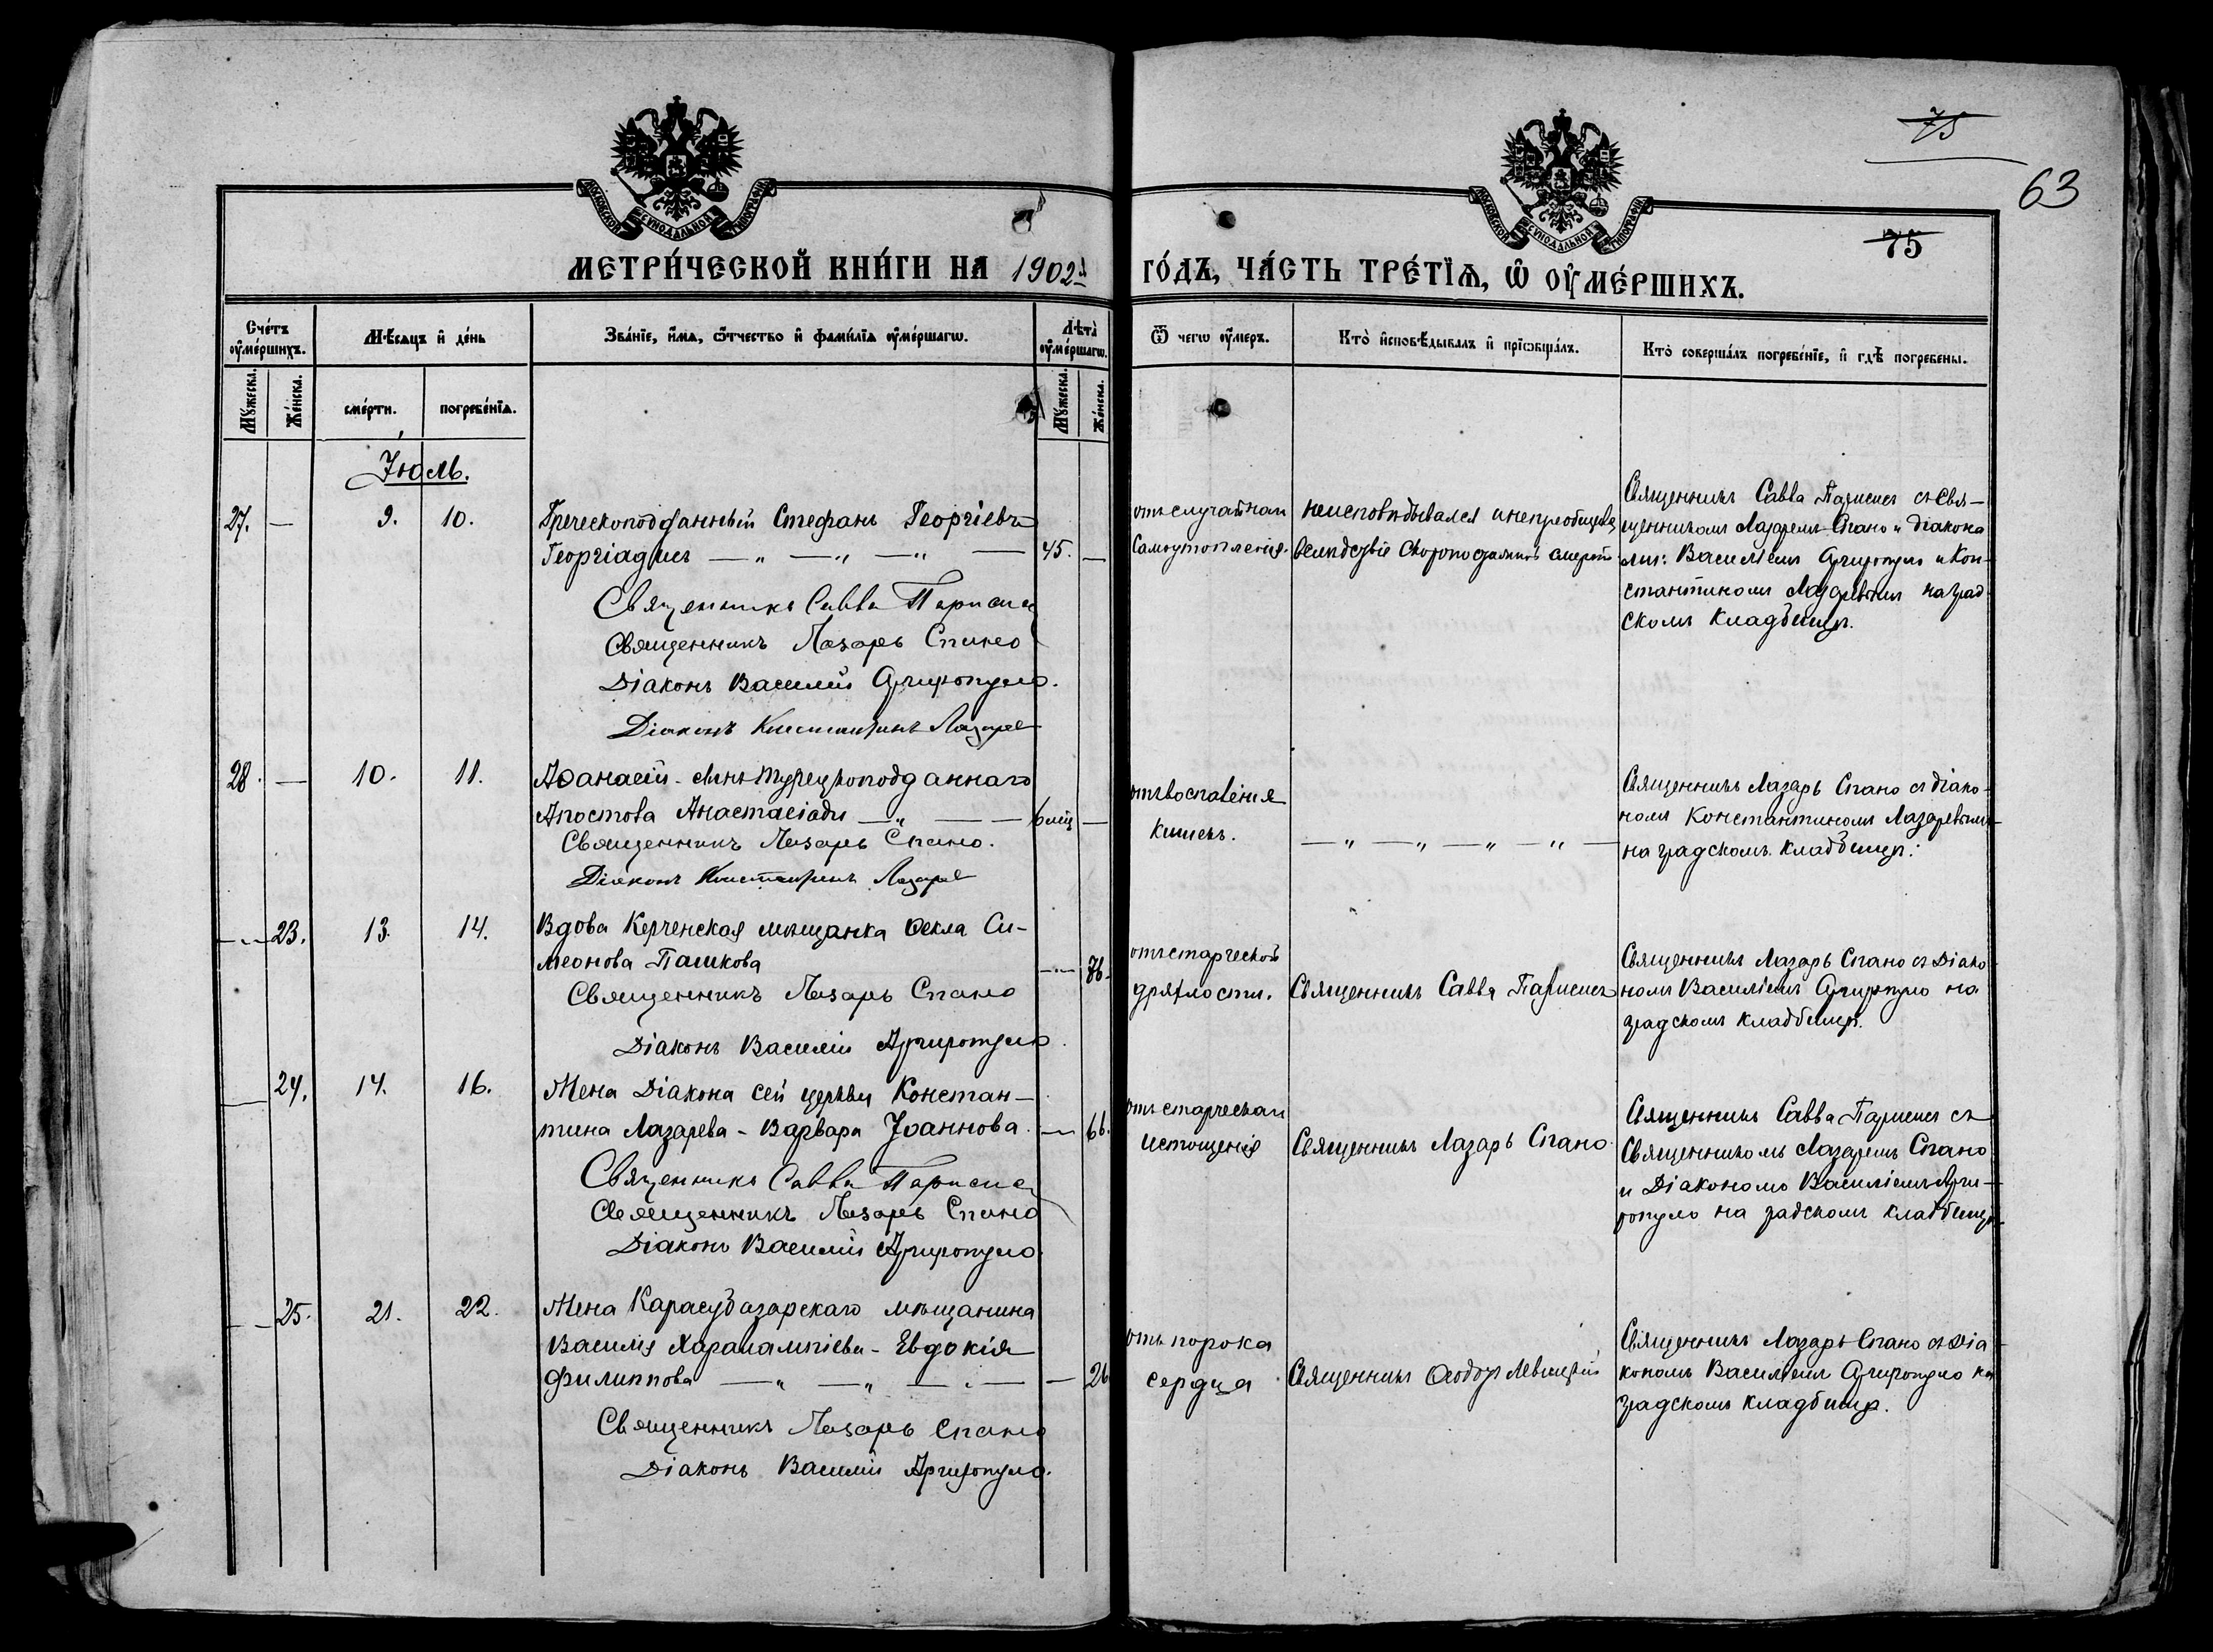 75
63
75
МОСКОВСКОЙ СУНОДАЛЬНОЙ ТИПОГРАФІИ
МОСКОВСКОЙ СУНОДАЛЬНОЙ ТИПОГРАФІИ
МЕТРИ́ЧЕСКОЙ КНИ́ГИ НА 1902й
ГО́ДЪ, ЧА́СТЬ ТРЕ́ТІѦ, Ѡ ОУМЕ́РШИХЪ.
Сче́тъ оуме́ршихъ.
Мѣсяцъ и де́нь
Зва́ніе, и́мѧ, ѻ́тчество и фами́лїѧ оуме́ршагѡ.
Лѣта̀ оуме́ршагѡ.
Ѿ чегѡ оу́меръ.
Кто̀ и҆сповѣ́дывалъ и прїѡбща́лъ.
Кто̀ соверша́лъ погребе́нїе, и гдѣ̀ погребены.
Му́жеска.
Же́нска.
сме́рти.
погребе́нїѧ.
Му́жеска.
Же́нска.
Іюль.
27. — 9. 10.
Греческоподданный Стефанъ Георгіевъ
Георгіадисъ — „ — „ — „ — 45. —
Священникъ Савва
Священникъ Лазарь Спано
Діаконъ Василій Аргиропуло.
Діаконъ Константинъ Лазарев
отъ случайнаго
Самоутопленія.
неисповѣдывался и непреобщался
вслѣдствіе скоропостижной смерти
Священникъ Савва с Свя-
щенникомъ Лазаремъ Спано и діакона
ми: Василіемъ Аргиропуло и Кон-
стантиномъ Лазаревымъ на град
скомъ кладбищѣ.
28. — 10. 11.
Аѳанасій - сынъ турецкоподданнаго
Апостола Анастасіади — „ — — 6 мѣц —
Священникъ Лазарь Спано.
Діаконъ Константинъ Лазарев
отъ воспаленія
кишекъ.
— „ — „ — „ — „ —
Священникъ Лазарь Спано с діако-
номъ Константиномъ Лазаревымъ
на градскомъ кладбищѣ.
— „ — 23. 13. 14.
Вдова Керченская мѣщанка Ѳекла Си-
меонова Пашкова — „ — 76.
Священникъ Лазарь Спано
Діаконъ Василій Аргиропуло.
отъ старческой
дряхлости.
Священникъ Савва
Священникъ Лазарь Спано с Діако-
номъ Василіемъ Аргиропуло на
градскомъ кладбищѣ.
— 24. 14. 16.
Жена Діакона сей церкви Констан-
тина Лазарева - Варвара Іоаннова. — 66.
Священникъ Савва
Священникъ Лазарь Спано
Діаконъ Василій Аргиропуло.
отъ старческаго
истощенія
Священникъ Лазарь Спано.
Священникъ Савва съ
Священникомъ Лазаремъ Спано
и Діакономъ Василіемъ Арги-
ропуло на градскомъ кладбищѣ.
— — 25. 21. 22.
Жена Карасубазарскаго мѣщанина
Василія Харалампіева - Евдокія
Филиппова — „ — „ — „ — — 26
Священникъ Лазарь Спано
Діаконъ Василій Аргиропуло.
отъ порока
сердца
Священникъ Ѳеодоръ Левицкій
Священникъ Лазарь Спано с Діа
кономъ Василіемъ Аргиропуло на
градскомъ кладбищѣ.